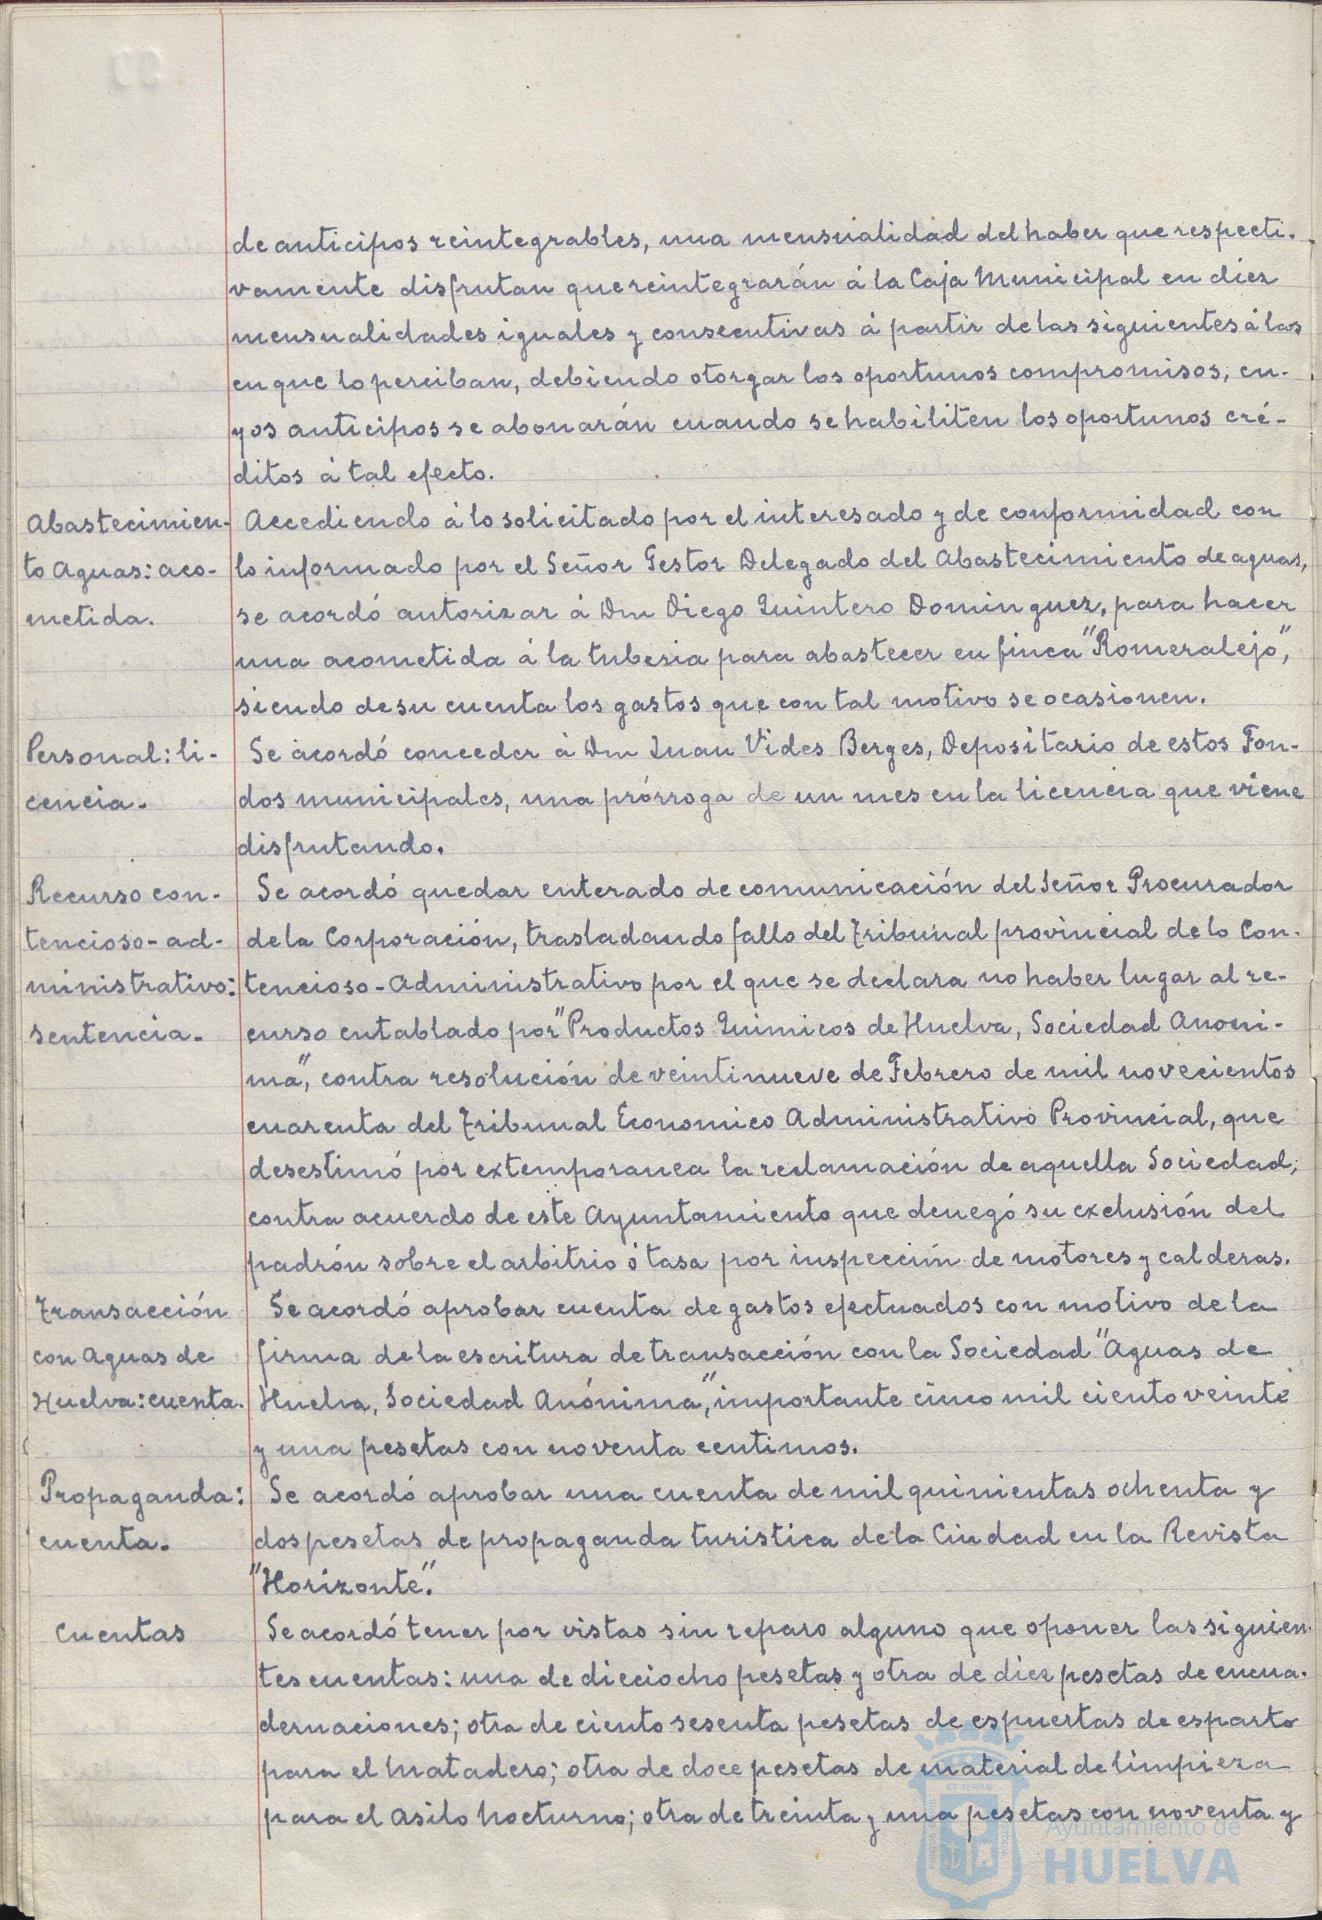 de anticipos reintegrables, una mensualidad del haber que respecti-
vamente disfrutan que reintegrarán á la Caja Municipal en diez
mensualidades iguales y consecutivas á partir de las siguientes á las
en que lo perciban, debiendo otorgar los oportunos compromisos, cu-
yos anticipos se abonarán cuando se habiliten los oportunos cré-
ditos á tal efecto.
Abastecimien-
to Aguas: aco-
metida.
Accediendo á lo solicitado por el interesado y de conformidad con
lo informado por el Señor Gestor Delegado del Abastecimiento de aguas,
se acordó autorizar á Dn Diego Quintero Dominguez, para hacer
una acometida á la tuberia para abastecer su finca "Romeralejo",
siendo de su cuenta los gastos que con tal motivo se ocasionen.
Personal: li-
cencia.
Se acordó conceder á Dn Juan Vides Berges, Depositario de estos Fon-
dos municipales, una prórroga de un mes en la licencia que viene
disfrutando.
Recurso con-
tencioso-ad-
ministrativo:
sentencia.
Se acordó quedar enterado de comunicación del Señor Procurador
de la Corporación, trasladando fallo del Tribunal provincial de lo Con-
tencioso-Administrativo por el que se declara no haber lugar al re-
curso entablado por "Productos Quimicos de Huelva, Sociedad Anoni-
ma", contra resolución de veintinueve de Febrero de mil novecientos
cuarenta del Tribunal Economico Administrativo Provincial, que
desestimó por extemporanea la reclamación de aquella Sociedad,
contra acuerdo de este Ayuntamiento que denegó su exclusión del
padrón sobre el arbitrio ó tasa por inspección de motores y calderas.
Transacción
con Aguas de
Huelva: cuenta.
Se acordó aprobar cuenta de gastos efectuados con motivo de la
firma de la escritura de transacción con la Sociedad "Aguas de
Huelva, Sociedad Anónima", importante cinco mil ciento veinte
y una pesetas con noventa centimos.
Propaganda:
cuenta.
Se acordó aprobar una cuenta de mil quinientas ochenta y
dos pesetas de propaganda turistica de la Ciudad en la Revista
"Horizonte".
Cuentas
Se acordó tener por vistas sin reparo alguno que oponer las siguien-
tes cuentas: una de dieciocho pesetas y otra de diez pesetas de encua-
dernaciones; otra de ciento sesenta pesetas de espuertas de esparto
para el Matadero; otra de doce pesetas de material de limpieza
para el Asilo Nocturno; otra de treinta y una pesetas con noventa y
Ayuntamiento de
HUELVA